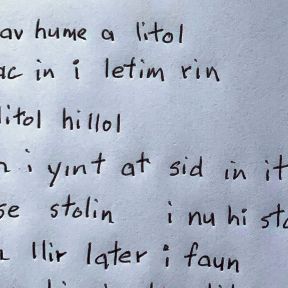 av hume a litol
ac in i letim rin
litol hillol
n i yint at sid in it
se stolin i nu hi sto
llir later i faun